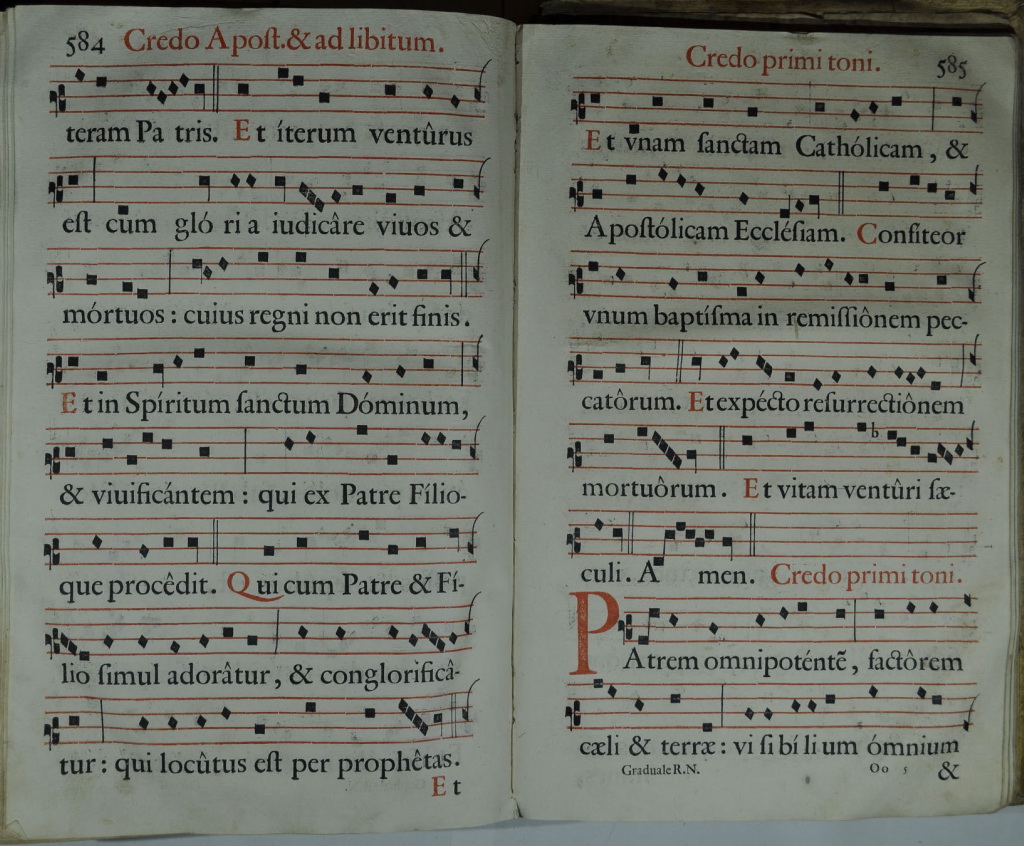 584 Credo Apoſt.& ad libitum.
teram Pa tris. Et íterum ventûrus
eſt cum gló ri a iudicâre viuos &
mórtuos : cuius regni non erit finis.
Et in Spíritum ſanctum Dóminum,
& viuificántem : qui ex Patre Fílio-
que procêdit. Qui cum Patre & Fí-
lio ſimul adorâtur, & conglorificâ-
tur : qui locûtus eſt per prophêtas.
Et
Credo primi toni. 585
Et vnam ſanctam Cathólicam, &
Apoſtólicam Eccléſiam. Confiteor
vnum baptíſma in remiſſiônem pec-
catôrum. Et expécto reſurrectiônem
b
mortuôrum. Et vitam ventûri ſæ-
culi. A men. Credo primi toni.
PAtrem omnipoténtẽ, factôrem
cæli & terræ : vi ſi bí li um ómnium
Graduale R.N. Oo 5 &